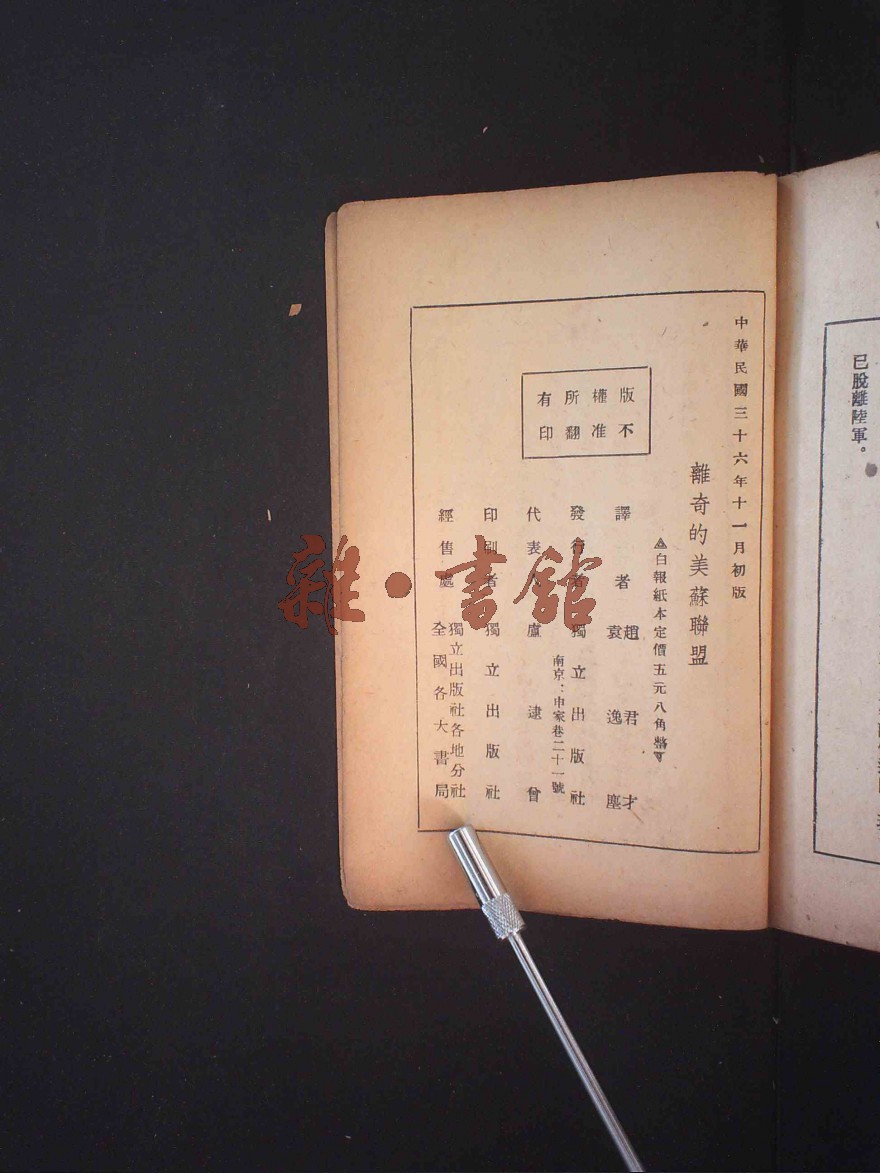 已脫離陸軍。
中華民國三十六年十一月初版
離奇的美蘇聯盟
白報紙本定價五元八角整
版權所有
不准翻印
譯者 趙君才
袁逸塵
發行者 獨立出版社
南京：申家巷二十一號
代表人 盧逮曾
印刷者 獨立出版社
經售處 獨立出版社各地分社
全國各大書局
雜·書館